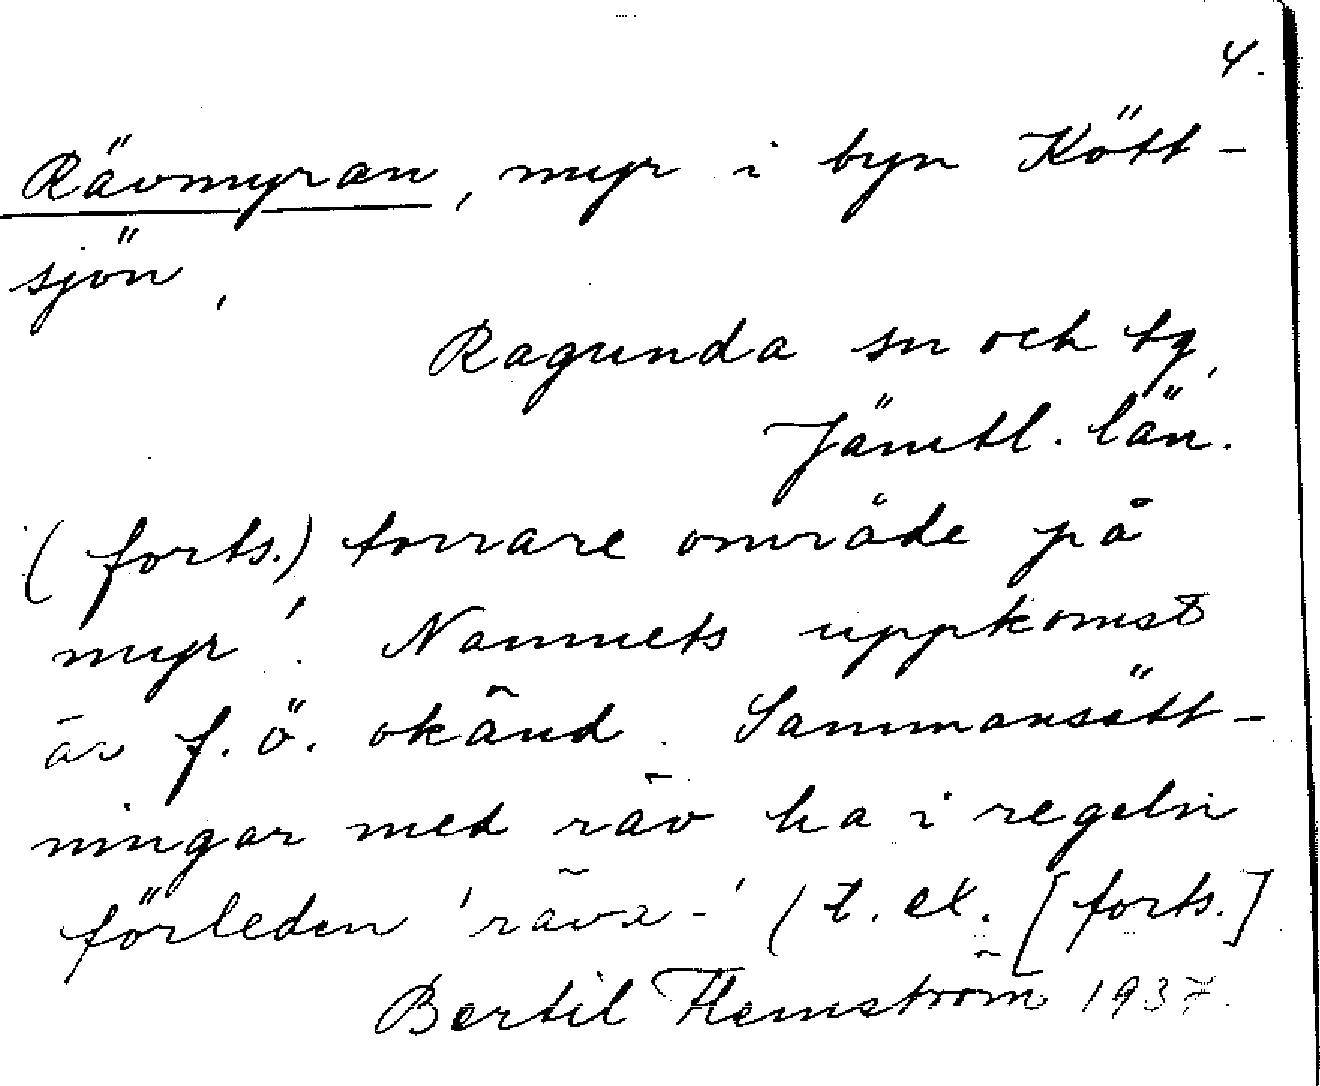 4.
Rävmyran, myr i byn Kött-
sjön,
Ragunda sn och tg,
Jämtl. län.
(forts.) torrare område på
myr'. Namnets uppkomst
är f. ö. okänd. Sammansätt-
ningar med räv ha i regeln
förleden 'räva-' (t. ex. [forts.]
Bertil Flemström 1937.